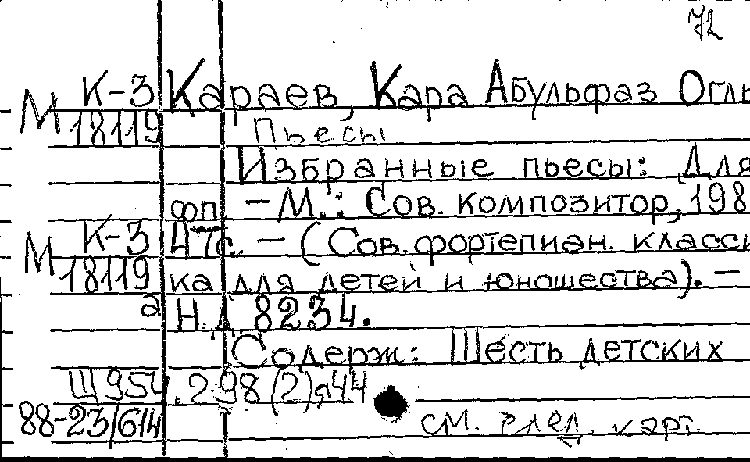 72
К-3 Караев, Кара Абульфаз Огль
М 18119 Пьесы
Избранные пьесы: Для
фп. – М.: Сов. композитор, 198
М К-3 47с. – (Сов. фортепиан. класси
18119 ка для детей и юношества). –
а Н.Д 8234.
Содерж: Шесть детских
Щ954.298(2)я44
88-23/614 см. след. карт.